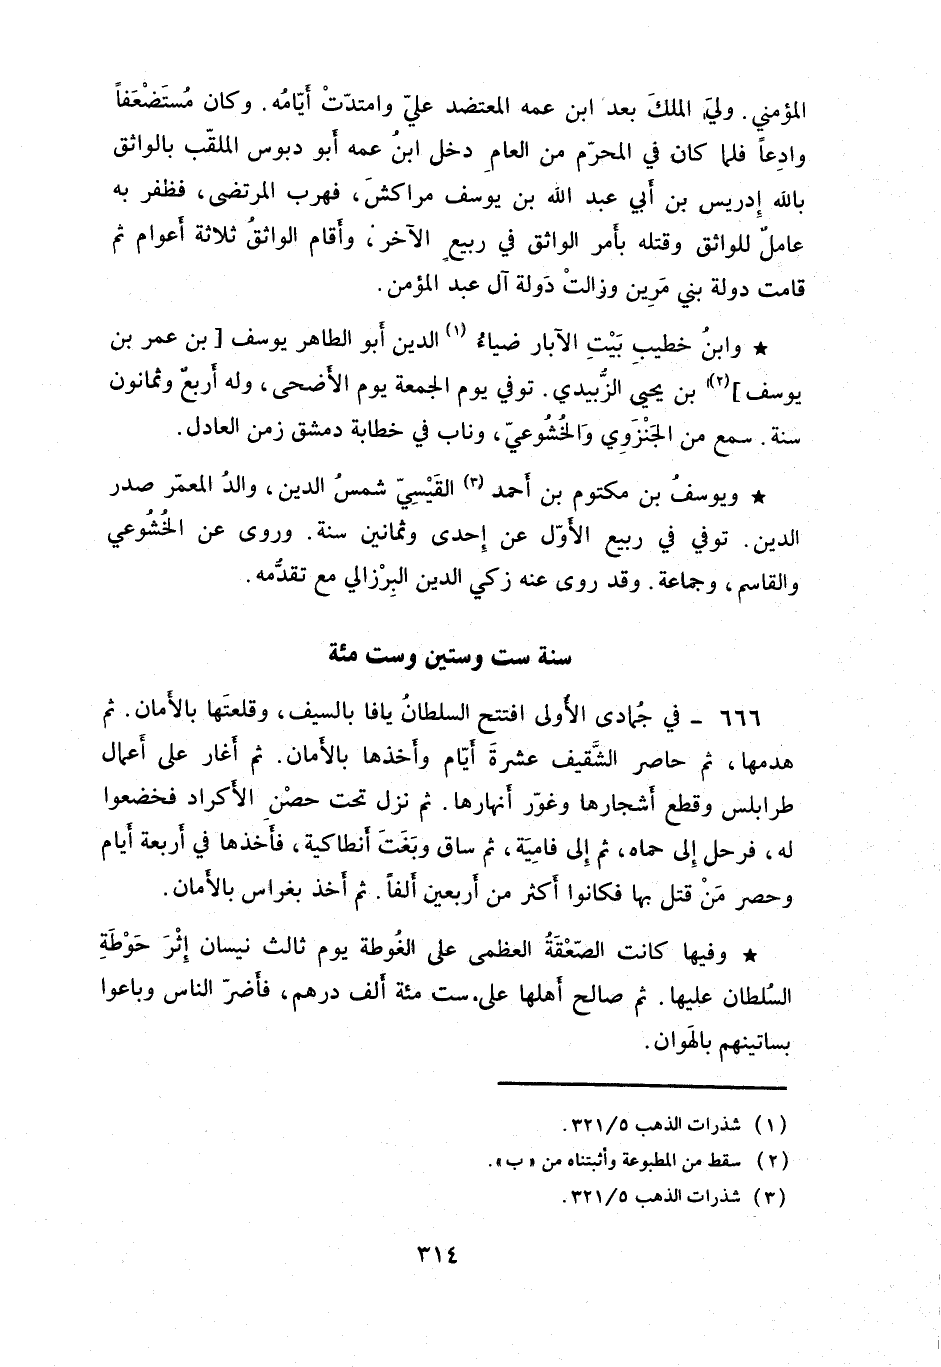 المؤمني. وليَ الملكَ بعد ابن عمه المعتضد عليّ وامتدّتْ أَيّامُه. وكان مُستَضْعَفاً
وادِعاً فلما كان في المحرّم من العامِ دخل ابنُ عمه أبو دبوس الملقّب بالواثق
بالله إدريس بن أبي عبد الله بن يوسف مراكشَ، فهرب المرتضى، فظفر به
عاملٌ للواثق وقتله بأمر الواثق في ربيعٍ الآخر، وأقام الواثقُ ثلاثة أعوام ثم
قامت دولة بني مَرِين وزالتْ دَولة آل عبد المؤمن.
★ وابنُ خطيبِ بَيْتِ الآبار ضياءُ (١) الدين أبو الطاهر يوسف [ بن عمر بن
يوسف ](٢) بن يحيى الزُّبيدي. توفي يوم الجمعة يوم الأضحى، وله أربعٌ وثمانون
سنة. سمع من الجَنْزَوِي وَالخُشُوعيّ، وناب في خطابة دمشق زمن العادل.
★ ويوسفُ بن مكتوم بن أحمد (٣) القَيْسِيّ شمسُ الدين، والدُ المعمّر صدر
الدين. توفي في ربيع الأوّل عن إحدى وثمانين سنة. وروى عن الخُشُوعي
والقاسم، وجماعة. وقد روى عنه زكي الدين البِرْزالي مع تقدُّمه.
سنة ست وستين وست مئة
٦٦٦ - في جُمادى الأولى افتتح السلطانُ يافا بالسيف، وقلعتَها بالأمان. ثم
هدمها، ثم حاصر الشَّقيف عشرةَ أيّام وأخذها بالأمان. ثم أغار على أعمال
طرابلس وقطع أشجارها وغوّر أنهارها. ثم نزل تحت حصْنِ الأكراد فخضعوا
له، فرحل إلى حماه، ثم إلى فامِيَة، ثم ساق وبَغَتَ أنطاكية، فأخذها في أربعة أيام
وحصر مَنْ قتل بها فكانوا أكثر من أربعين ألفاً. ثم أخذ بغراس بالأمان.
★ وفيها كانت الصّعْقَةُ العظمى على الغُوطة يوم ثالث نيسان إثْرَ حَوْطَةِ
السُلطان عليها. ثم صالح أهلها على ست مئة ألف درهم، فأضرّ الناس وباعوا
بساتينهم بالهَوان.
(١) شذرات الذهب ٣٢١/٥.
(٢) سقط من المطبوعة وأثبتناه من «ب».
(٣) شذرات الذهب ٣٢١/٥.
٣١٤